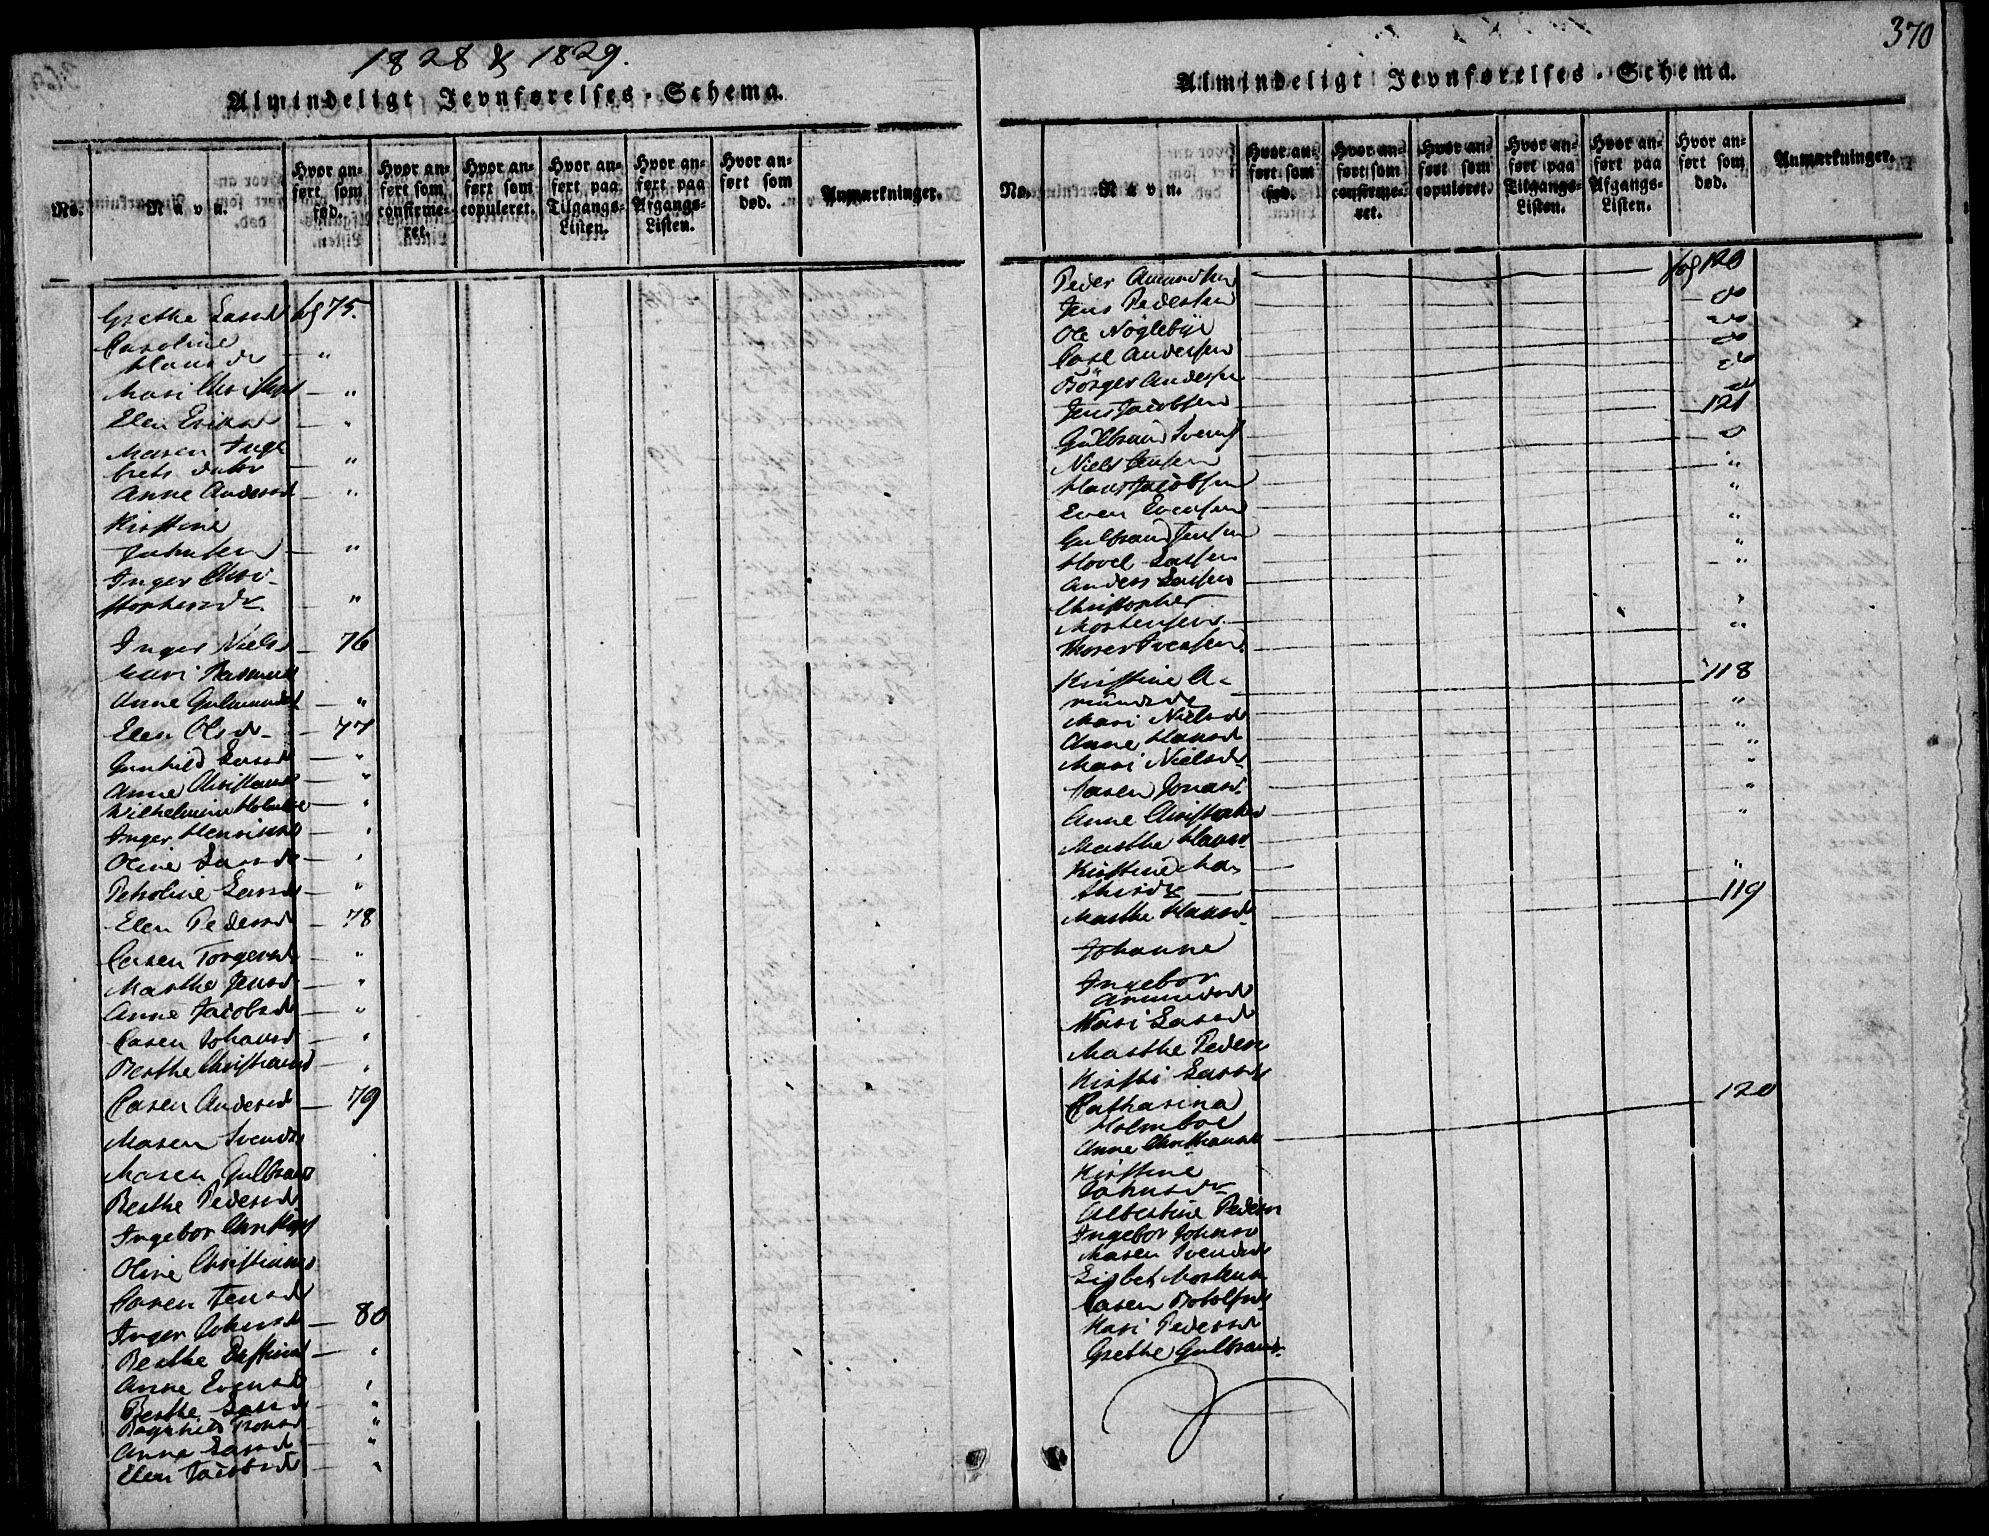 1828 & 1829.
Almindeligt Jevnførelses-Schema.
No.
Navn.
Hvor anført som fød.
Hvor anført som confirmeret.
Hvor anført som copuleret.
Hvor anført paa Tilgangs-Listen.
Hvor anført paa Afgangs-Listen.
Hvor anført som død.
Anmærkninger.
Grethe Larsd 75.
Caroline
Hansdr — "
Mari Christophs — "
Elen Eriksd — "
Maren Inge
brets datter — "
Anne Andersd — "
Kirstine
— "
Inger Chri-
stophersdr — "
Inger Nielsd — 76
Mari Rasmusd
Anne Gulmundsd — "
Elen Olsdr — 77
Gunhild Larsd — "
Anne Christiansd — "
Wilhelmine Holmboe — "
Inger Henriksd — "
Oline Larsdr — "
Petroline Larsd — "
Elen Pedersd — 78
Caren Torgersd — "
Marthe Jensd — "
Anne Jacobsd — "
Caren Johansd — "
Berthe Christiansd — "
Caren Andersd — 79
Maren Svendsd
Maren Gulbrands
Berthe Pedersd
Ingebor Christophs
Oline Christiansd
Caren Jensd
Inger Johnsd — 80
Berthe — "
Anne Evensd "
Berthe Larsd "
Ragnhild "
Anne Larsd — "
Elen Jacobsd — "
370
Almindeligt Jevnførelses-Schema.
No.
Navn.
Hvor anført som fød.
Hvor anført som confirmeret.
Hvor anført som copuleret.
Hvor anført paa Tilgangs-Listen.
Hvor anført paa Afgangs-Listen.
Hvor anført som død.
Anmærkninger.
Peder Amundsen — 120
Jens Pedersen — do
Ole Nøglebye — do
Carl Andersen — do
Børger Andersen — do
Jens Jacobsen — 121
Gulbrand Svends
Niels Jensen — "
Hans Jacobsen — "
Even Evensen — "
Gulbrand Jensen — "
Hovel Larsen — "
Anders Larsen
Christopher
Mortensen — "
Thorer Svensen — "
Kirstine A-
mundsdr — 118
Mari Nielsd — "
Anne Hansd — "
Mari Nielsd — "
Caren Jonasd — "
Anne Christophers — "
Marthe Hansd — "
Kirstine Ma-
thisdr — "
Marthe Hansd — 119
Johanne
Ingebor
Amundsd
Kari Larsd
Marthe Peders
Kirsti Larsd
Catharina
Holmboe
Anne Christiansd — 120
Kirstine
Johnsdr
Albertine Peders
Ingebor Johans
Maren Svendsd
Lisbet Mortens
Caren Botolfsd
Kari Pedersd
Grethe Gulbrands